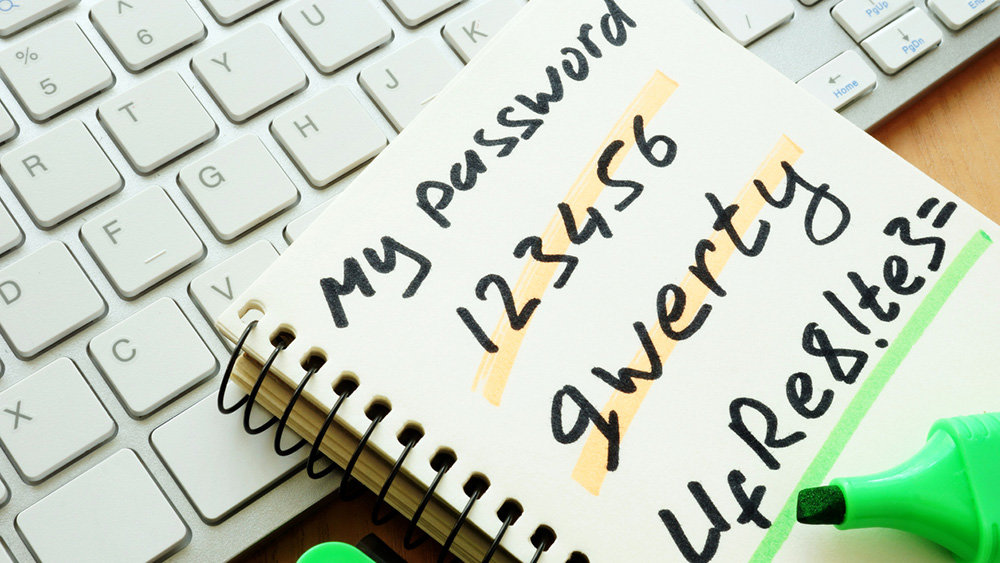 My password
123456
qwerty
UfRe8!te3=
^
6
U
K
PgUp
End
%
5
Y
J
PgDn
T
H
← Home
R
G
F
D
V
C
X